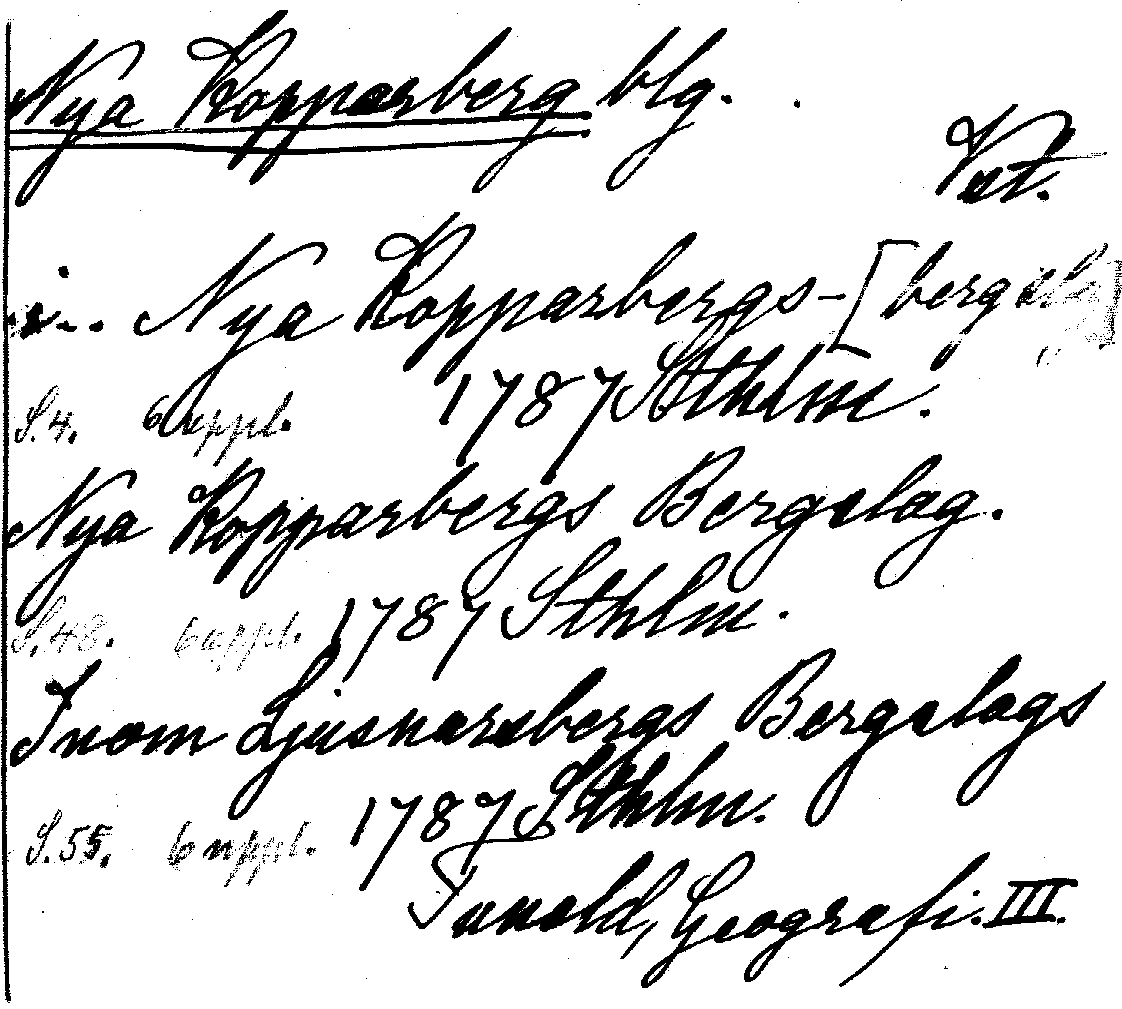 Nya Kopparberg blg.
Vst.
i... Nya Kopparbergs-[bergslag]
S.4. 6 uppl. 1787 Sthlm.
Nya Kopparbergs Bergslag.
S.48. 6 uppl. 1787 Sthlm.
Inom Ljusnarsbergs Bergslags
S.55. 6 uppl. 1787 Sthlm.
Tuneld, Geografi. III.